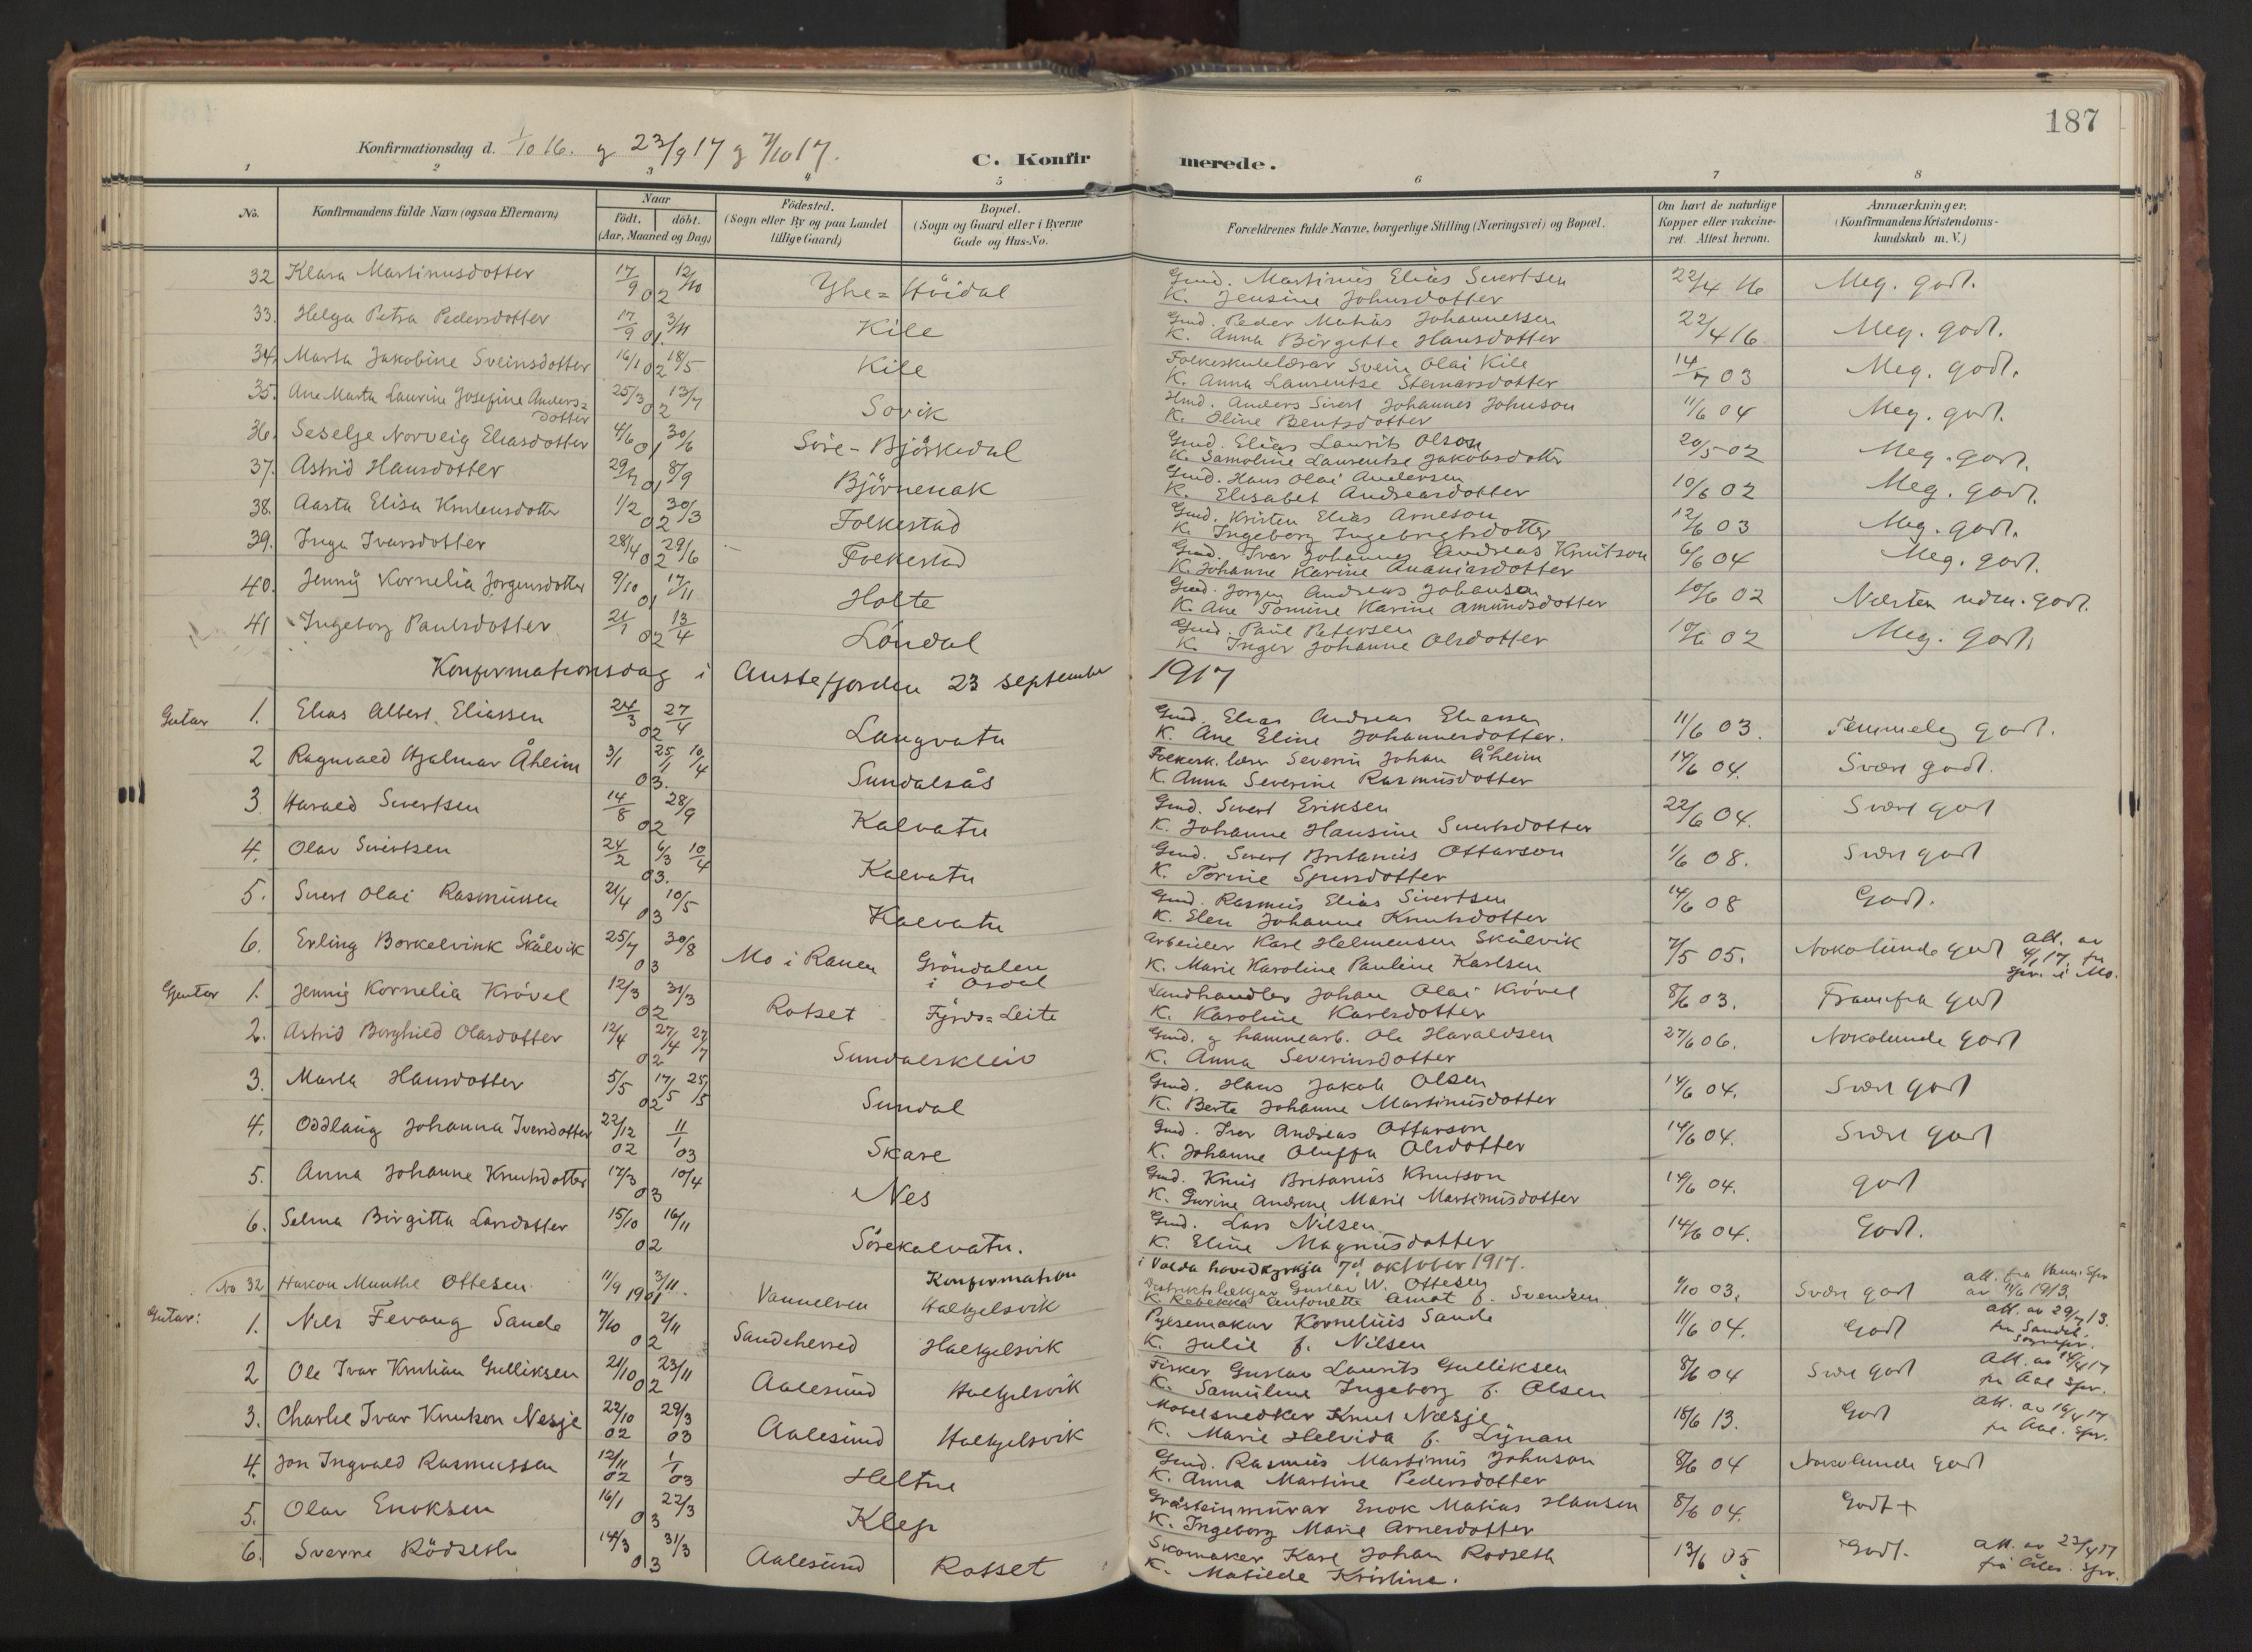 187
Konfirmationsdag d. 1/10 16. g 23/9 17 g 7/10 17.
C. Konfirmerede.
1 2 3 4 5 6 7 8
No. Konfirmandens fulde Navn (ogsaa Efternavn) Naar født. døbt. (Aar, Maaned og Dag) Fødested. (Sogn eller By og paa Landet tillige Gaard) Bopæl. (Sogn og Gaard eller i Byerne Gade og Hus-No. Forældrenes fulde Navne, borgerlige Stilling (Næringsvei) og Bopæl. Om havt de naturlige Kopper eller vakcineret. Attest herom. Anmærkninger. (Konfirmandens Kristendomskundskab m. V.)
32 Klara Martinusdotter 17/9 02 12/10 Yhe= Höidal Gmd. Martinus Elias Sivertsen 22/4 16 Meg. godt.
K. Jensine Johnsdotter
33. Helga Petra Pedersdotter 17/9 01. 3/11 Kile Gmd. Peder Matias Johannessen 22/4 16. Meg. godt.
K. Anna Birgitte Hansdotter
34. Marta Jakobine Sveinsdotter 16/1 02 18/5 Kile Folkeskulelærar Svein Olai Kile 14/7 03 Meg. godt.
K. Anna Laurentse Steinarsdotter
35. Ane Marta Laurine Josefine Anders=dotter 25/3 02 13/7 Sovik Hmd. Anders Sivert Johannes Johnson 11/6 04 Meg. godt.
K. Eline Bentsdotter
36. Seselje Norveig Eliasdotter 4/6 01 30/6 Søre-Björkedal Gmd. Elias Laurits Olson 20/5 02 Meg. godt.
K. Samoline Laurentse Jakobsdotter
37. Astrid Hansdotter 29/7 01 8/9 Björnenak Gmd. Hans Olai Andersen 10/6 02 Meg. godt.
K. Elisabet Andreasdotter
38. Aasta Elisa Kristensdotter 1/2 02 30/3 Folkestad Gmd. Kristen Elias Arneson 12/6 03 Meg. godt.
K. Ingeborg Ingebrigtsdotter
39. Inga Ivarsdotter 28/4 02 29/6 Folkestad Gmd. Ivar Johannes Andreas Knutson 6/6 04 Meg. godt.
K. Johanne Karine Ananiasdotter
40. Jenny Kornelia Jorgensdotter 9/10 01 17/11 Holte Gmd. Jorgen Andreas Johanson 10/6 02 Næsten udm. godt.
K. Ane Tomine Karine Amundsdotter
41 Ingeborg Paulsdotter 21/1 02 13/4 Löndal Gmd. Paul Petersen 10/6 02 Meg. godt.
K. Inger Johanne Olsdotter
Konfirmationsdag i Austefjorden 23 september 1917
Gutar 1. Elias Albert Eliassen 24/3 02 27/4 Langvatn Gmd. Elias Andreas Eliassen 11/6 03. Temmeleg godt.
K. Ane Eline Johannesdotter.
2 Ragnvald Hjalmar Åheim 3/1 03. 25/1 10/4 Sundalsås Folkesk. lærr Severin Johan Åheim 14/6 04. Svært godt.
K. Anna Severine Rasmusdotter
3 Harald Sivertsen 14/8 02 28/9 Kalvatn Gmd. Sivert Eriksen 22/6 04. Svært godt
K. Johanne Hansine Sivertsdotter
4. Olav Sivertsen 24/2 03. 6/3 10/4 Kalvatn Gmd. Sivert Britanius Ottarson 1/6 08. Svært godt
K. Torine Sjursdotter
5. Sivert Olai Rasmussen 21/4 03 10/5 Kalvatn Gmd. Rasmus Elias Sivertsen 14/6 08 Godt.
K. Elen Johanne Knutsdotter
6. Erling Borkelvink Skålvik 25/7 03 30/8 Mo i Ranen Gröndalen i Osdal Arbeider Karl Helmensen Skålvik 7/5 05. Nokolunde godt Att. av 4/1 17. fr. spr. i Mo.
K. Marie Karoline Pauline Karlsen
Gjentar 1. Jenny Kornelia Krövel 12/3 02 31/3 Rotset Fyrds=Leite Landhandler Johan Olai Krövel 8/6 03. Framifra godt
K. Karoline Karlsdotter
2. Astrid Borghild Olasdotter 12/4 02 27/4 27/7 Sundalskleiv Gmd. g hamnearb. Ole Haraldsen 27/6 06. Nokolunde godt
K. Anna Severinsdotter
3. Marta Hansdotter 5/5 02 17/5 25/5 Sundal Gmd. Hans Jakob Olsen 14/6 04. Svært godt
K. Berte Johanne Martinusdotter
4. Oddlaug Johanna Iversdotter 22/12 02 11/1 03 Skare Gmd. Iver Andreas Ottarson 14/6 04. Svært godt
K. Johanne Oluffa Olsdotter
5. Anna Johanne Knutsdotter 17/3 03 10/4 Nes Gmd. Knut Britanius Knutson 14/6 04. godt
K. Gurine Andrine Marie Martinusdotter
6. Selma Birgitta Larsdotter 15/10 02 16/11 Sörekalvatn. Gmd. Lars Nilsen 14/6 04. Godt.
K. Eline Magnusdotter
Konfirmation i Volda hovedkyrkja 7d oktober 1917.
No 32 Hakon Munthe Ottesen 11/9 1901 3/11. Vannelven Halkjelsvik Distriktslækjar Gustav W. Ottesen 1/10 03. Svært godt att. fra Vann. Spr av 11/6 1913.
K. Rebekka Antonette Amot f. Svendsen
Gutar: 1. Nils Fevang Sande 7/10 02 2/11 Sandeherred Halkjelsvik Pylsemakar Kornelius Sande 11/6 04. Godt att. av 29/7 13. fr. Sandeh. Sognepr.
K. Julie f. Nilsen
2 Ole Ivar Kristian Gulliksen 21/10 02 23/11 Aalesund Halkjelsvik Fisker Gustav Laurits Gulliksen 8/6 04 Svært godt Att. av 14/4 17 fr. Aal. Spr.
K. Samuline Ingeborg f. Olsen
3. Charle Ivar Knutson Nesje 22/10 02 29/3 03 Aalesund Halkjelsvik Møbelsnedker Knut Næsje 18/6 13. Godt Att. av 16/4 17 fr. Aal. Spr.
K. Marie Helvida f. Lynau
4. Jon Ingvald Rasmussen 12/11 02 1/1 03 Heltne Gmd. Rasmus Martinus Johnson 8/6 04 Nokolunde godt
K. Anna Martine Pedersdotter
5. Olav Enoksen 16/1 03 22/3 Klep Gråsteinmurar Enok Matias Hansen 8/6 04. Godt +
K. Ingeborg Marie Arnesdotter
6. Sverre Rödseth 14/3 03 31/3 Aalesund Rotset Skomaker Karl Johan Rodseth 13/6 05 Godt. Att. av 23/4 17 frå Åles. Spr.
K. Matilde Kristine.